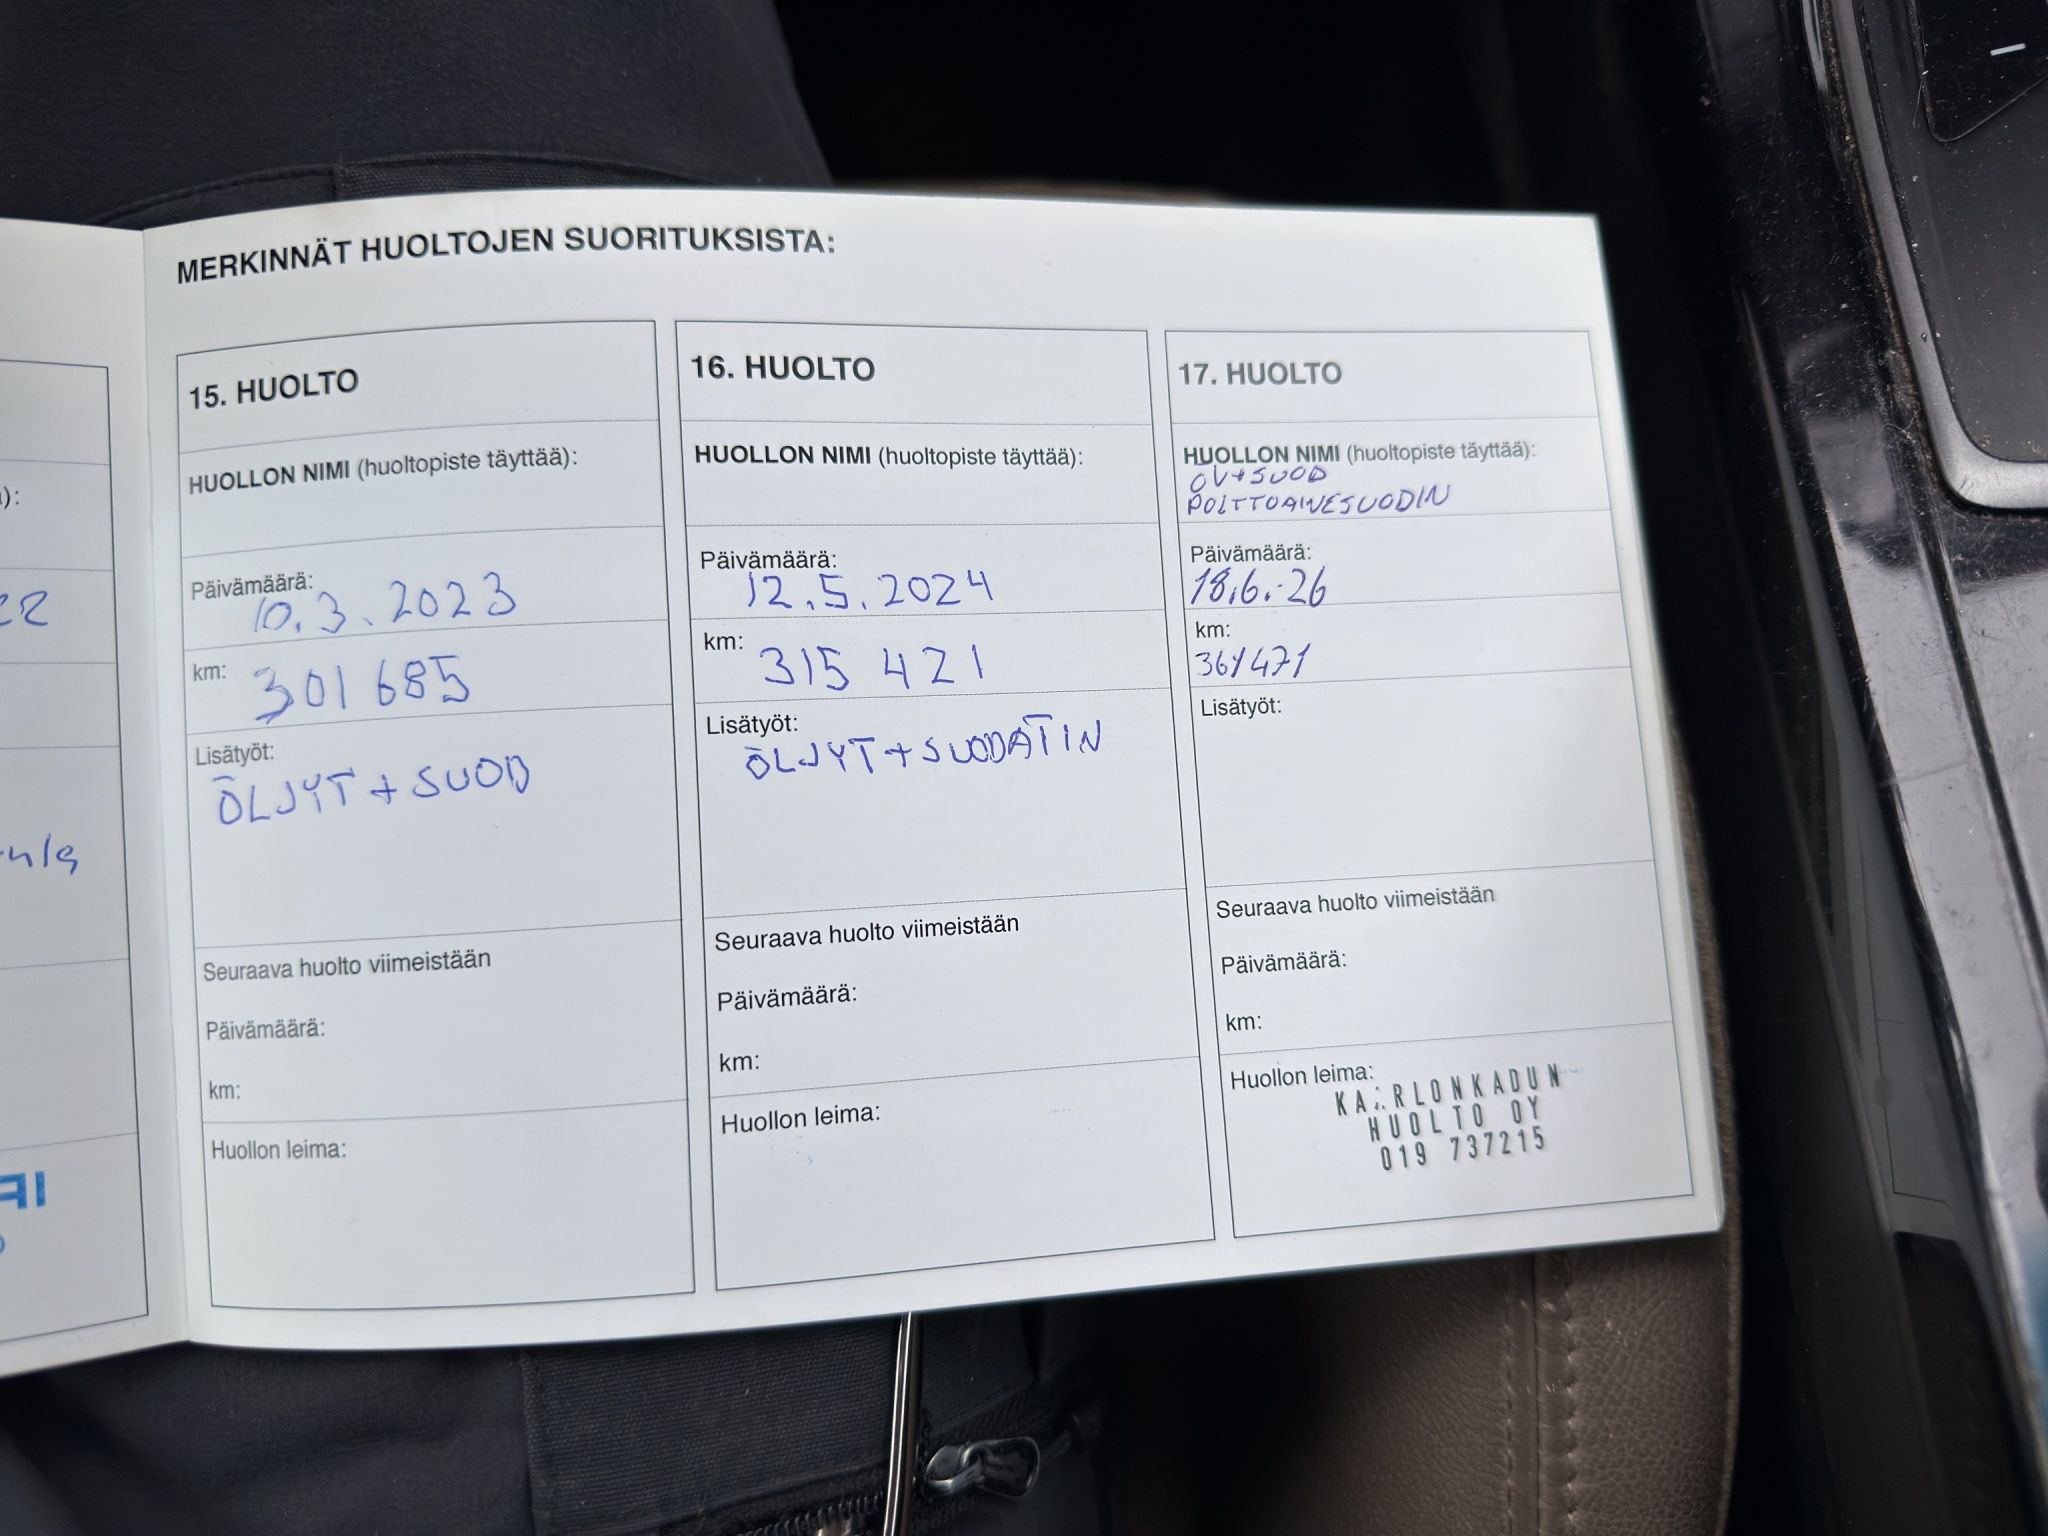 MERKINNÄT HUOLTOJEN SUORITUKSISTA:
15. HUOLTO
HUOLLON NIMI (huoltopiste täyttää):
Päivämäärä:
10.3.2023
km:
301 685
Lisätyöt:
ÖLJYT + SUOD
Seuraava huolto viimeistään
Päivämäärä:
km:
Huollon leima:
16. HUOLTO
HUOLLON NIMI (huoltopiste täyttää):
Päivämäärä:
12.5.2024
km:
315 421
Lisätyöt:
ÖLJYT + SUODATIN
Seuraava huolto viimeistään
Päivämäärä:
km:
Huollon leima:
17. HUOLTO
HUOLLON NIMI (huoltopiste täyttää):
ÖV+SUOD
POLTTOAINESUODIN
Päivämäärä:
18.6.-26
km:
361471
Lisätyöt:
Seuraava huolto viimeistään
Päivämäärä:
km:
Huollon leima:
KAARLONKADUN
HUOLTO OY
019 737215